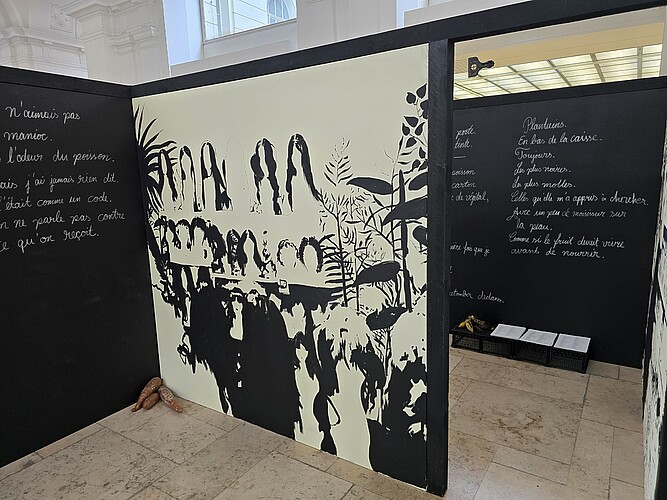 n'aimais pas
manioc.
l'odeur du poisson.
ais j'ai jamais rien dit.
'était comme un code.
n ne parle pas contre
ce qu'on reçoit.
porte
tente
poisson
carton
de végétal,
être fou que je
septembre dedans.
Plantains.
En bas de la caisse.
Toujours.
Les plus noires.
Les plus molles.
Celles qu'elle m'a appris à chercher.
Avec un peu de moisissure sur
la peau.
Comme si le fruit devait vivre
avant de nourrir.